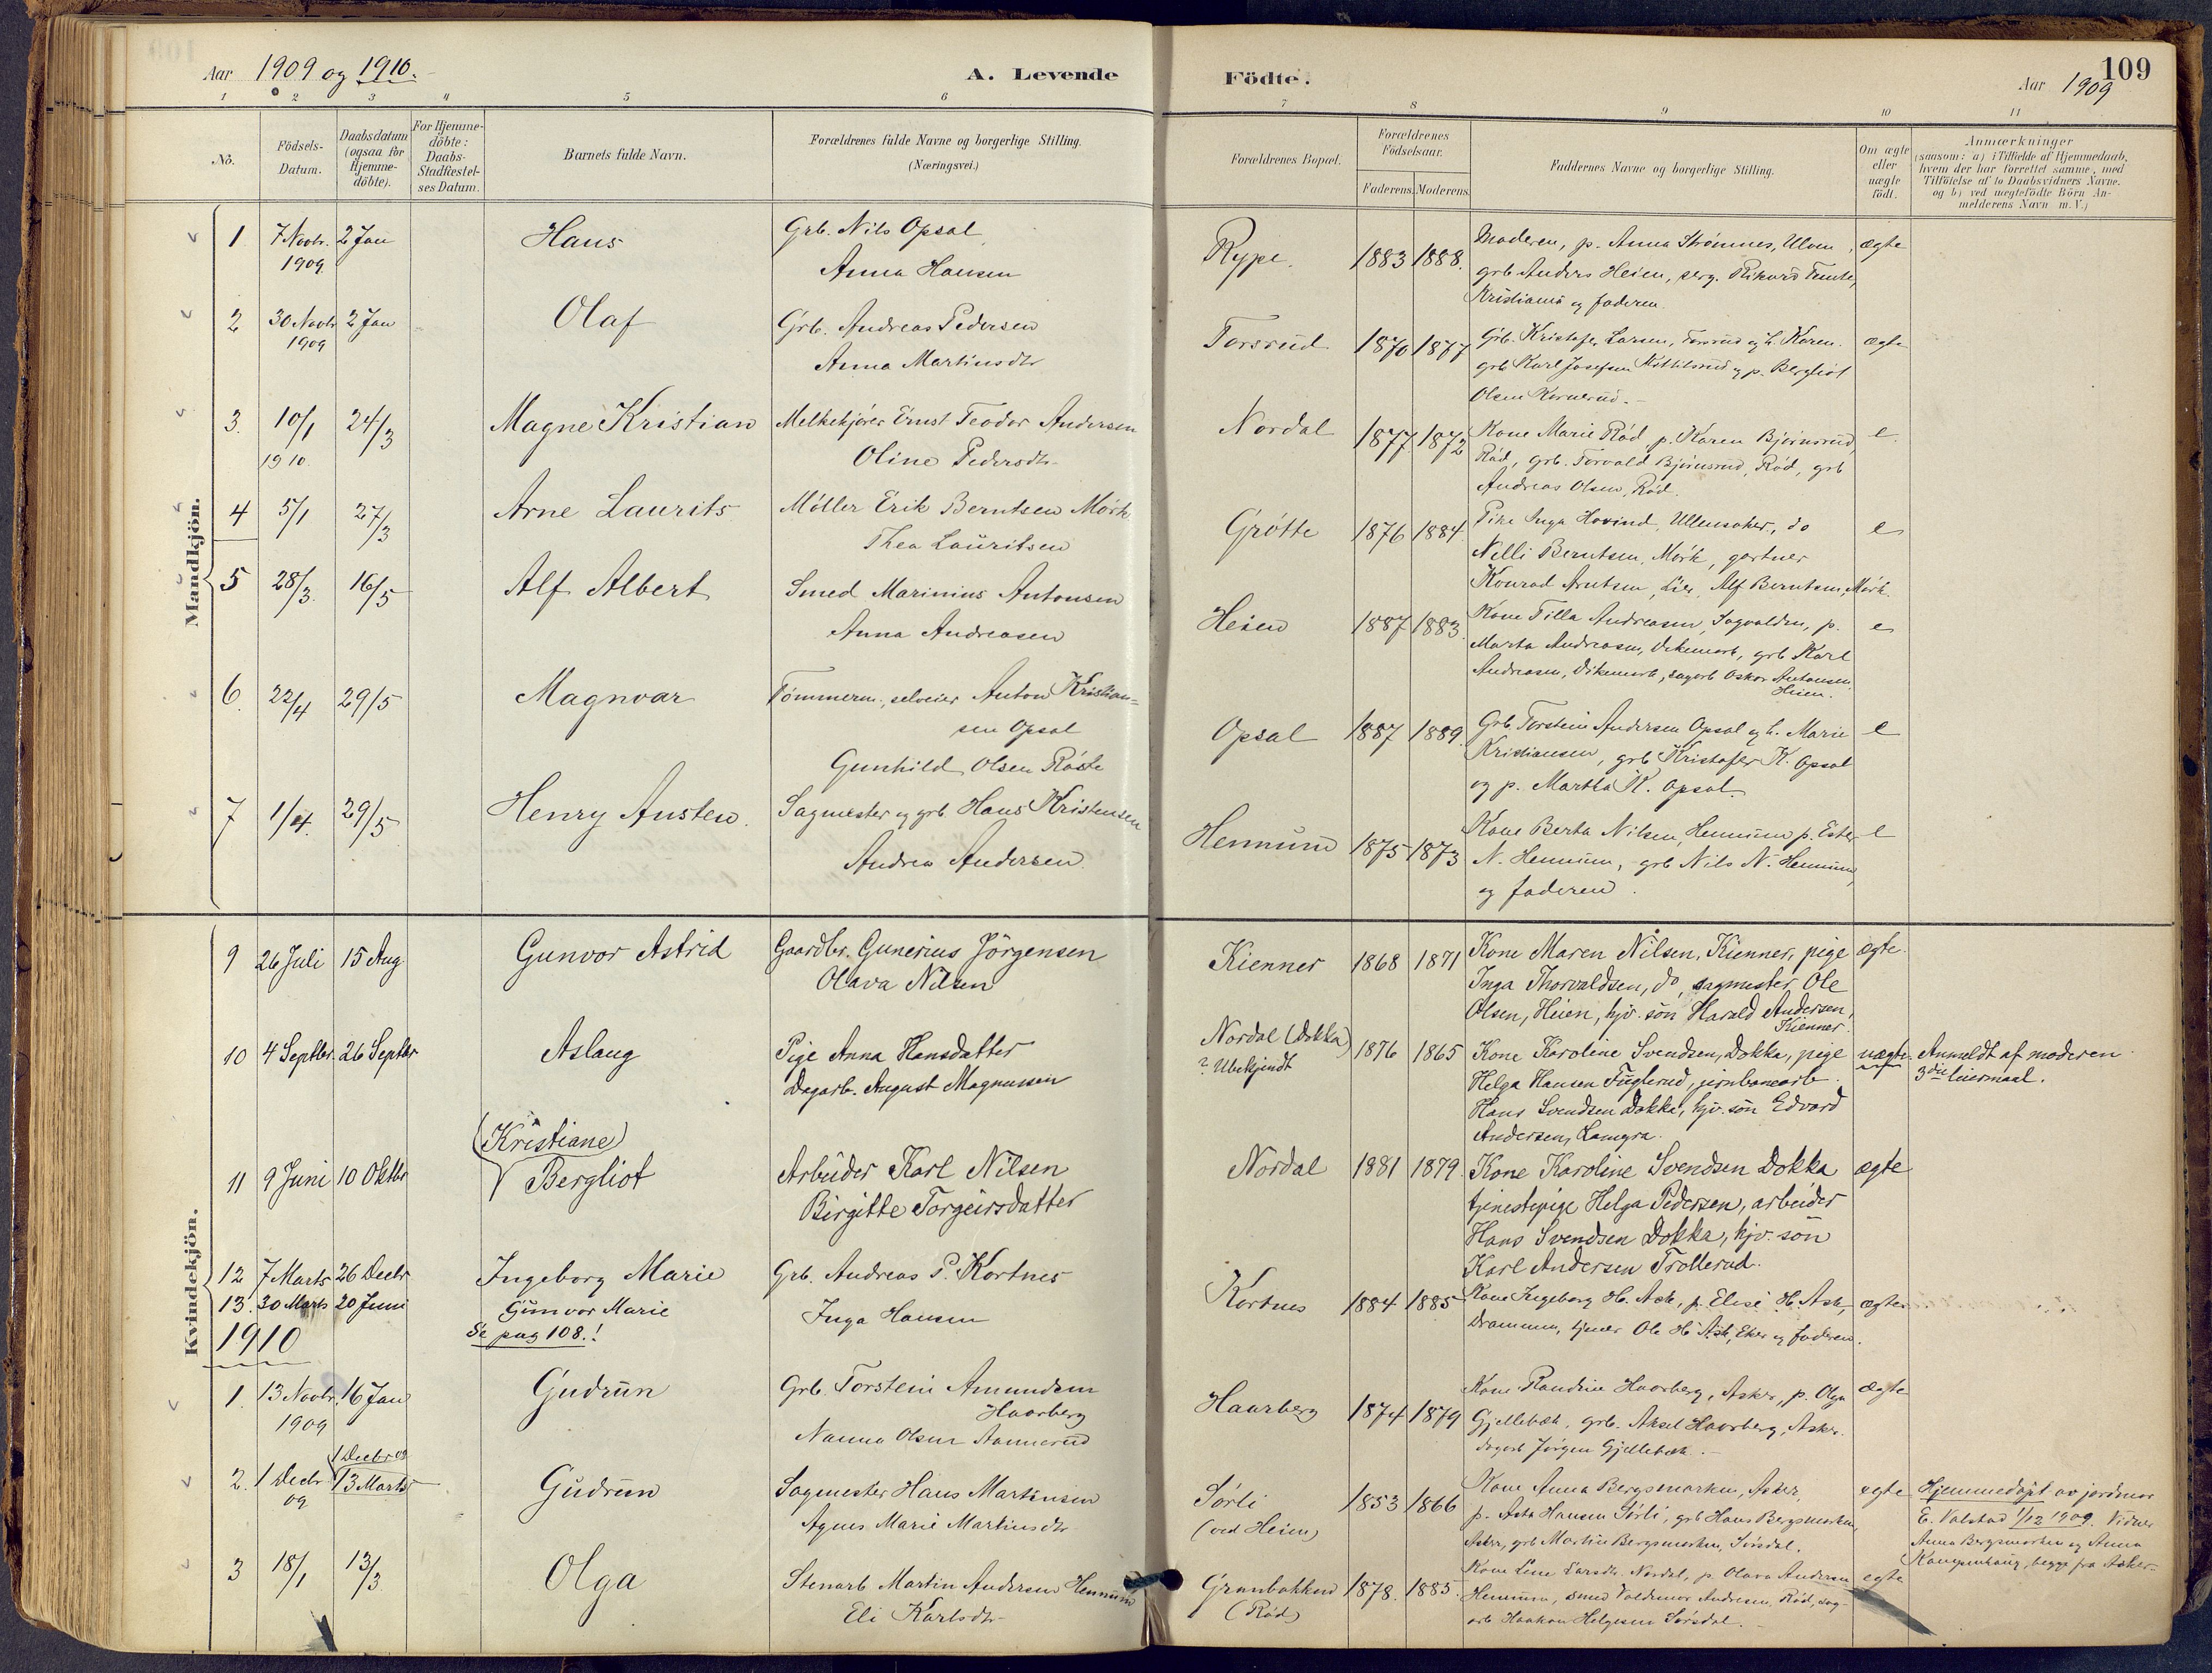 Aar 1909 og 1910.
A. Levende Födte.
Aar 1909
109
1 2 3 4 5 6 7 8 9 10 11
No.
Födsels-Datum.
Daabsdatum (ogsaa for Hjemme-döbte).
For Hjemme-döbte: Daabs-Stadfæstel-ses Datum.
Barnets fulde Navn.
Forældrenes fulde Navne og borgerlige Stilling.
(Næringsvei.)
Forældrenes Bopæl.
Forældrenes Födselsaar.
Faderens. Moderens.
Faddernes Navne og borgerlige Stilling.
Om ægte eller uægte födt.
Anmærkninger
(saasom: a) i Tilfælde af Hjemmedaab,
hvem der har forrettet samme, med
Tilföielse af to Daabsvidners Navne.
og b) ved uægtefödte Börn An-
melderens Navn m.V.)
Mandkjön.
1 7 Novbr. 1909 2 Jan Hans Grb. Nils Opsal
Anna Hansen
Rype. 1883 1888. Moderen, p. Anna Strömnes, Ulven, ægte
grb Anders Heien, serg. Rikard Temte,
Kristiania og faderen
2 30 Novbr 1909 2 Jan Olaf Grb. Andreas Pedersen
Anna Martinsdtr
Torsrud 1870 1877 Grb. Kristofer Larsen, Torsrud og h. Karen. ægte
grb Karl Josefsen Kittilsrud og p. Bergliot
Olsen Kornerud.
3. 10/1 1910. 24/3 Magne Kristian Melkekjörer Ernst Teodor Andersen
Oline Pedersdtr
Nordal 1877 1872 Kone Marie Röd p. Karen Björnsrud, e.
Röd, grb. Torvald Björnsrud, Röd, grb
Andreas Olsen, Röd.
4 5/1 27/3 Arne Laurits Möller Erik Berntsen Mörk
Thea Lauritsen
Grötte 1876 1884. Pike Inga Hovind, Ullensaker, do e
Nelli Berntsen, Mörk, gartner
Konrad Arntsen, Lier, Alf Berntsen, Mörk.
5 28/3. 16/5 Alf Albert Smed Marinius Antonsen
Anna Andreasen
Heien 1887 1883. Kone Tilla Andreasen, Sagvolden, p. e
Marta Andreasen, Dikemark, grb Karl
Andreasen, Dikemark, sagarb Oskar Antonsen,
Heien.
6. 22/4 29/5 Magnvar Tömmerm., selveier Anton Kristian-
sen Opsal
Gunhild Olsen Röste
Opsal 1887 1889. Grb. Torstein Andersen Opsal og h. Marie e
Kristiansen, grb Kristofer K. Opsal
og p. Martha K. Opsal.
7 1/4. 29/5 Henry Austen. Sagmester og grb. Hans Kristensen
Andrea Andersen.
Hennum 1875 1873 Kone Berta Nilsen, Hennum p. Ester e
N. Hennum, grb Nils N. Hennum,
og faderen.
Kvindekjön.
9 26 Juli 15 Aug Gunvor Astrid Gaardbr. Gunerius Jörgensen
Olava Nilsen
Kienner 1868 1871 Kone Maren Nilsen, Kienner, pige ægte.
Inga Thorvaldsen, do, sagmester Ole
Olsen, Heien, hjv. sön Harald Andersen,
Kienner.
10 4 Septbr. 26 Septbr Aslaug Pige Anna Hansdatter
Dagarb. August Magnussen
Nordal (Dokka)
? Ubekjendt
1876 1865 Kone Karoline Svendsen, Dokka, pige uægte. Anmeldt af moderen.
Helga Hansen Fuglerud, jernbanearb. 3die leiermaal.
Hans Svendsen Dokka, hjv. sön Edvard
Andersen,
(Kristiane)
11 9 Juni 10 Oktbr Bergliot Arbeider Karl Nilsen
Birgitte Torgeirsdatter
Nordal 1881 1879. Kone Karoline Svendsen Dokka ægte
tjenestepige Helga Pedersen, arbeider
Hans Svendsen Dokka, hjv. sön
Karl Andersen Trollerud.
12 7 Marts 26 Decbr Ingeborg Marie Grb. Andreas P. Kortnes
Inga Hansen
Kortnes 1884 1885 Kone Ingeborg H. Ask, p. Elise H. Ask, ægte
Drammen, tjener Ole H. Ask, Eker og faderen.
13. 30 Marts 20 Juni Gunvor Marie
Se pag 108.!
1910
1. 13 Novbr. 1909 16 Jan Gudrun Grb. Torstein Amundsen
Haarberg
Nanna Olsen
Haarberg 1874 1879 Kone Randine Haarberg, Asker, p. Olga ægte
Gjellebæk, grb. Aksel Haarberg, Asker.
dagarb Jörgen Gjellebæk.
2. 1 Decbr 09 1 Decbr 09 13 Marts Gudrun Sagmester Hans Martinsen
Agnes Marie Martinsdtr
Sörli
(ved Heien)
1853 1866 Kone Anna Bergsmarken, Asker, ægte Hjemmedöpt av jordmor
p. Asta Hansen Sörli, grb Hans Bergsmarken, E. Valstad 1/12 1909. Vidner
Asker, grb Martin Bergsmarken, Sörsdal. Anna Bergsmarken og Anna
begge fra Asker
3 18/1 13/3 Olga Stenarb Martin Andersen Hennum
Eli Karlsdtr
Granbakken
(Röd)
1878. 1885. Kone Lene Larsdtr. Nordal, p. Olava Andersen ægte
Hennum, smed Valdemar Andresen, Röd, sag-
arb Haakon Helgesen Sörsdal.